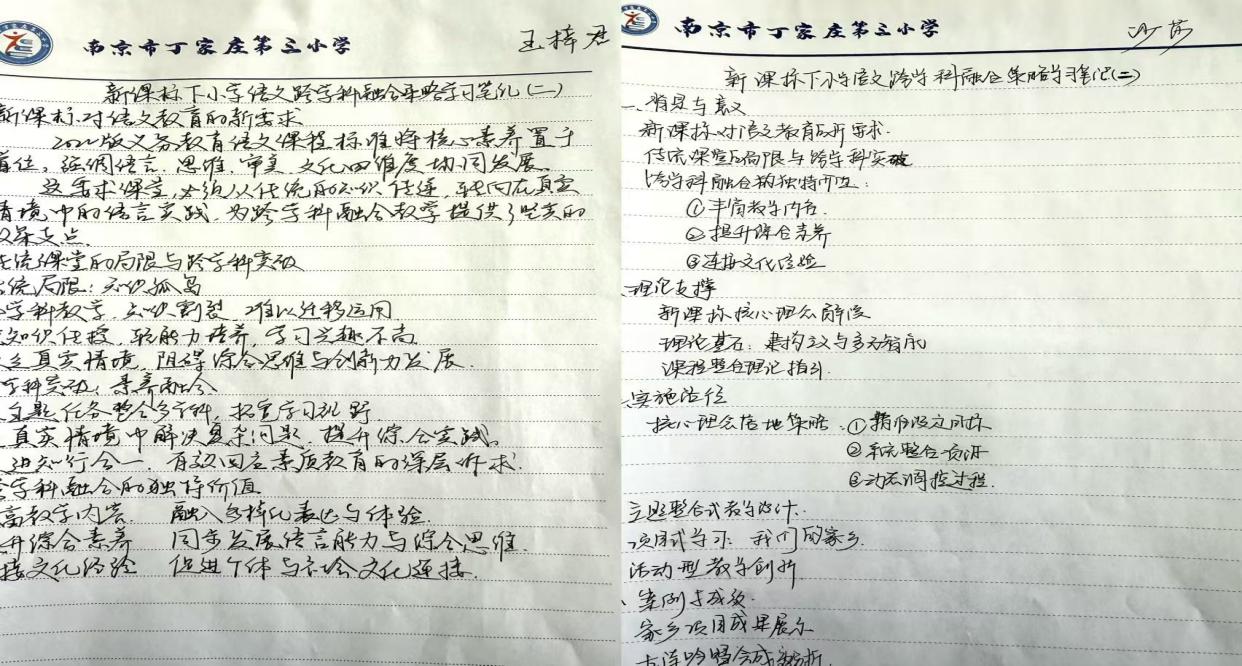 南京市丁家庄第三小学
王梓君
新课标下小学语文跨学科融合策略学习笔记(二)
新课标对语文教育的新要求
2022版义务教育语文课程标准将核心素养置于
首位,强调语言、思维、审美、文化四维度协同发展。
这要求课堂,必须从传统的知识传递,转向在真实
情境中的语言实践,为跨学科融合教学提供了坚实的
政策支点。
传统课堂的局限与跨学科突破
传统局限:知识孤岛
学科教学,知识割裂,难以迁移运用
知识传授,轻能力培养,学习兴趣不高
乏真实情境,阻碍综合思维与创新力发展.
学科突破:素养融合
主题任务整合多学科,拓宽学习视野
真实情境中解决复杂问题,提升综合实践。
进知行合一,有效回应素质教育的深层诉求.
学科融合的独特价值
富教学内容 融入多样化表达与体验.
升综合素养 同步发展语言能力与综合思维.
接文化经验 促进个体与社会文化连接.
南京市丁家庄第三小学
新课标下小学语文跨学科融合策略学习笔记(二)
一、背景与意义
新课标对语文教育的新要求.
传统课堂局限与跨学科突破
跨学科融合的独特价值:
①丰富教学内容.
②提升综合素养
③连接文化经验
理论支撑
新课标核心理念解读
理论基石:建构主义与多元智能
课程整合理论指引.
实施路径
核心理念落地策略.①精准设立目标
②系统整合资源
③动态调控过程.
主题整合式教学设计.
项目式学习:我们的家乡.
活动型教学创新
案例与成效.
家乡项目成果展示